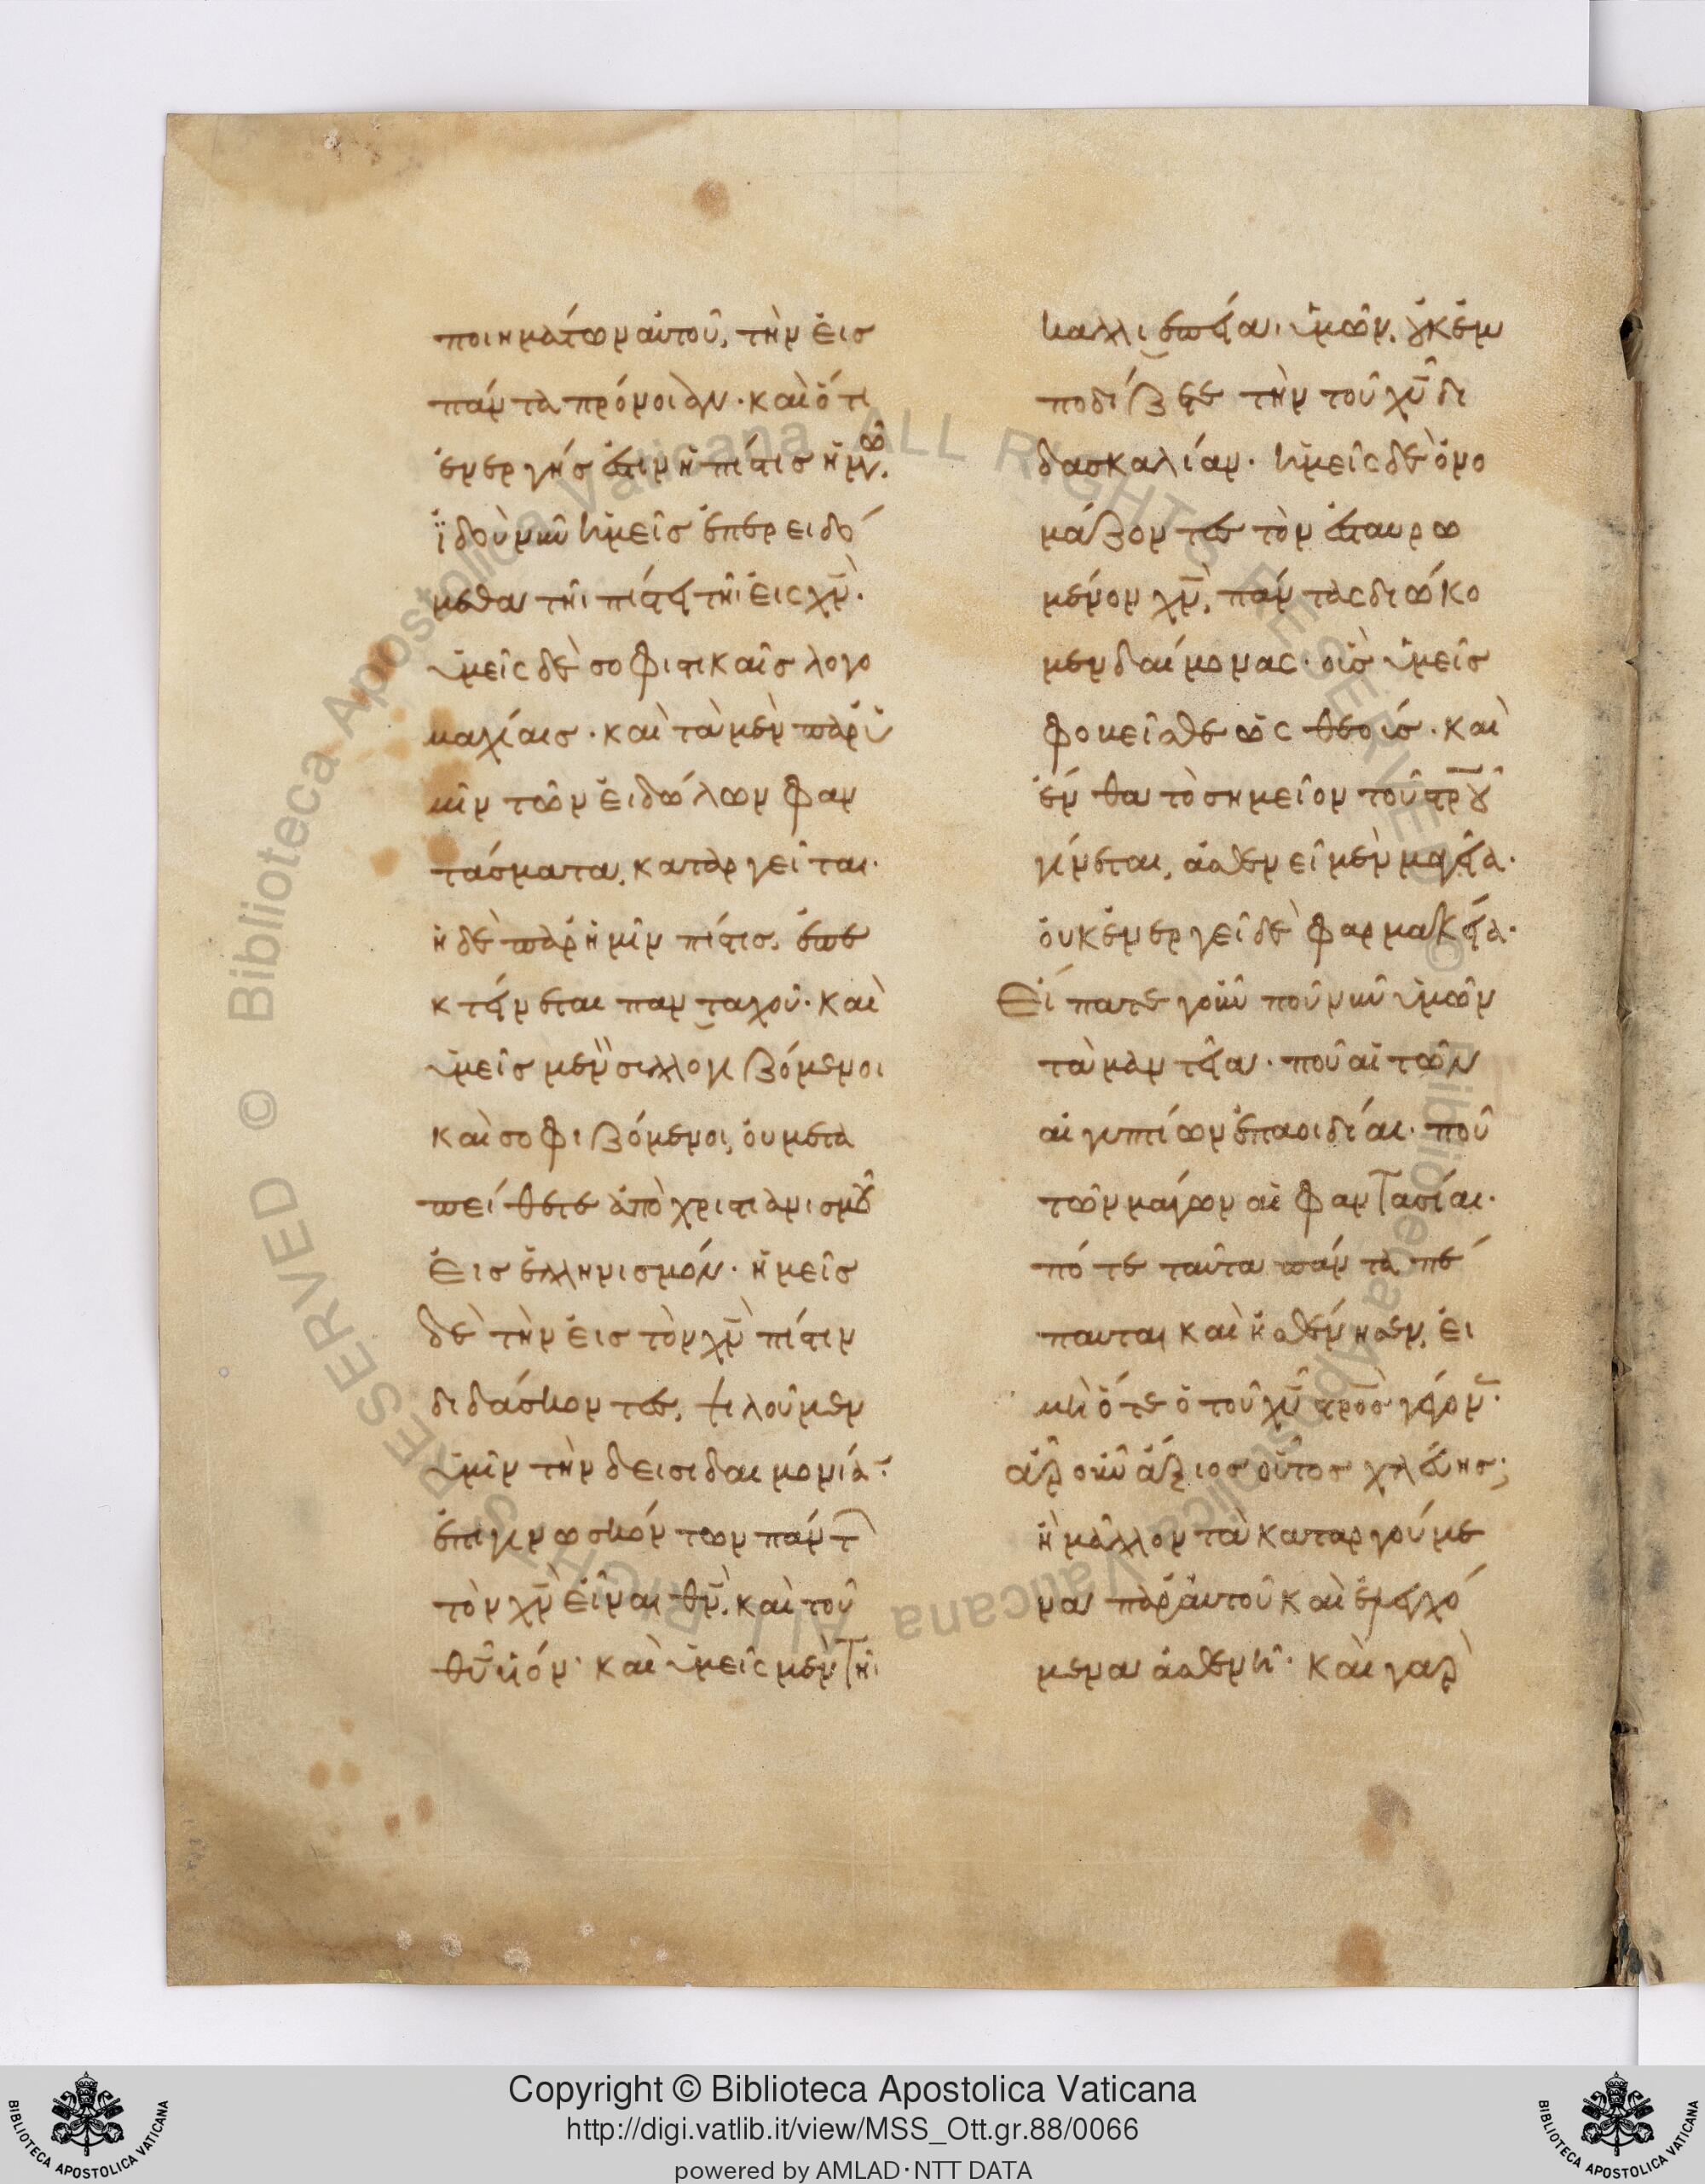 ποιημάτων αὐτοῦ, τὴν εἰς
πάντα πρόνοιαν· καὶ ὅτι
ἐνεργής ἐστιν ἡ πίστις ἡμῶν.
ϊδοὺ νῦν ἡμεῖς ἐπερειδό
μεθα τῆι πίστει τῆι εἰς χν̄.
ὑμεῖς δὲ σοφιστικαῖς λογο
μαχίαις· καὶ τὰ μὲν παρ' ὑ
μῖν τῶν εἰδώλων φαν
τάσματα, καταργεῖται·
ἡ δὲ παρ' ἡμῖν πίστις, ἐπε
κτείνεται πανταχοῦ· καὶ
ὑμεῖς μὲν συλλογιζόμενοι
καὶ σοφιζόμενοι, οὐ μετα
πείθετε ἀπὸ χριστιανισμοῦ
εἰς ἑλληνισμόν· ἡμεῖς
δὲ τὴν εἰς τὸν χν̄ πίστιν
διδάσκοντες, ψιλοῦμεν
ὑμῖν τὴν δεισιδαιμονίαν·
ἐπιγινωσκόντων πάντων
τὸν χν̄ εἶναι θν̄, καὶ τοῦ
θῡ υἱόν· καὶ ὑμεῖς μὲν τῆι
καλλιεπείαι ὑμῶν, οὐκ ἐμ
ποδίζετε τὴν τοῦ χῡ δι
δασκαλίαν· ἡμεῖς δὲ ὀνο
μάζοντες τὸν ἐσταυρω
μένον χν̄, πάντας διώκο
μεν δαίμονας· οὓς ὑμεῖς
φοβεῖσθε ὡς θεούς· καὶ
ἔνθα τὸ σημεῖον τοῦ στρ̄οῦ
γίνεται, ἀσθενεῖ μὲν μαγεία·
οὐκ ἐνεργεῖ δὲ φαρμακεία·
Εἴπατε γοῦν ποῦ νῦν ὑμῶν
τὰ μαντεῖα· ποῦ αἱ τῶν
αἰγυπτίων ἐπαοιδίαι· ποῦ
τῶν μάγων αἱ φαντασίαι·
πότε ταῦτα πάντα πέ
παυται καὶ ἠσθένησεν, εἰ
μὴ ὅτε ὁ τοῦ χῡ στρ̄ὸς γέγονεν·
ἆρ' οὖν ἄξιος οὗτος χλεύης;
ἢ μᾶλλον τὰ καταργούμε
να παρ' αὐτοῦ καὶ ἐλεγχό
μενα ἀσθενῆ· καὶ γὰρ